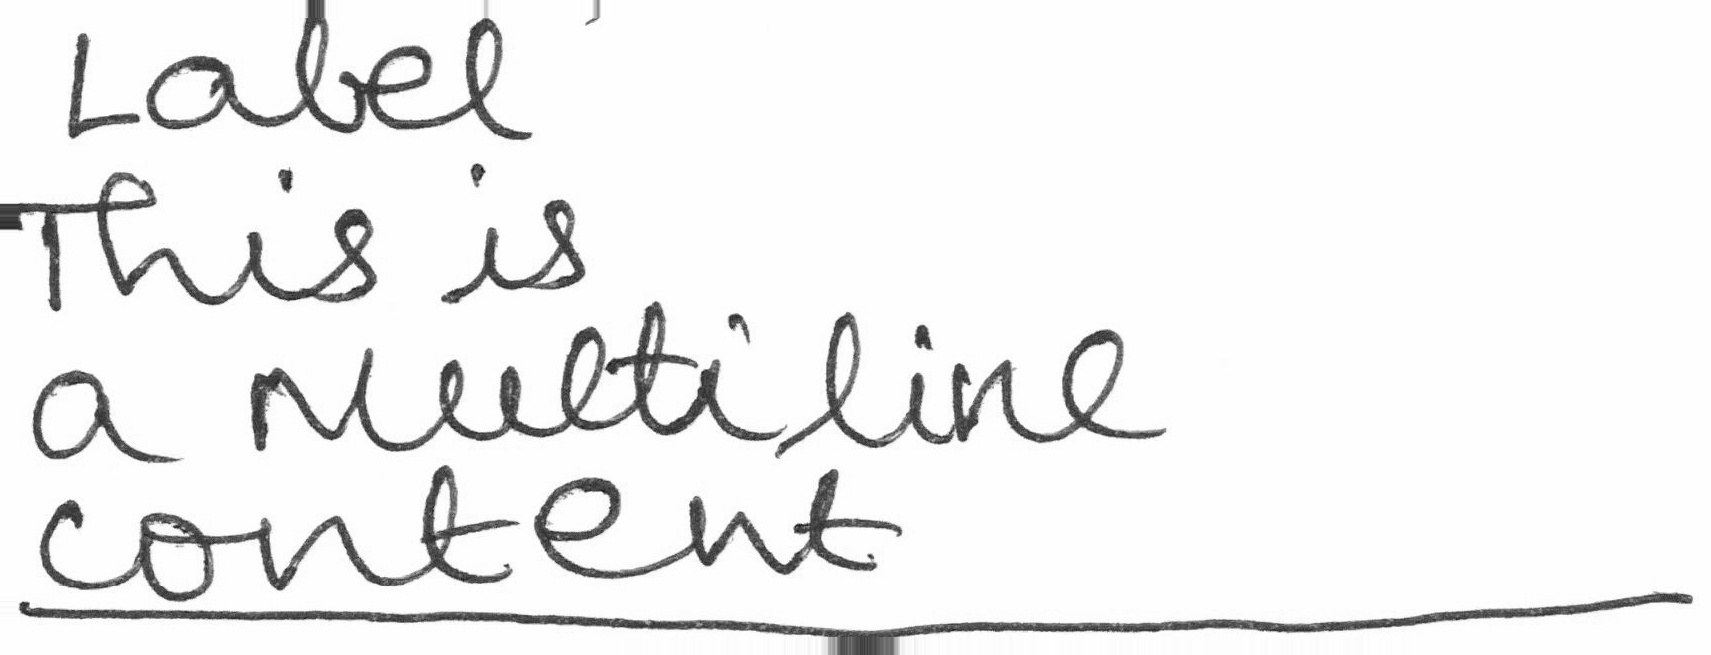 Label
This is
a Multiline
content